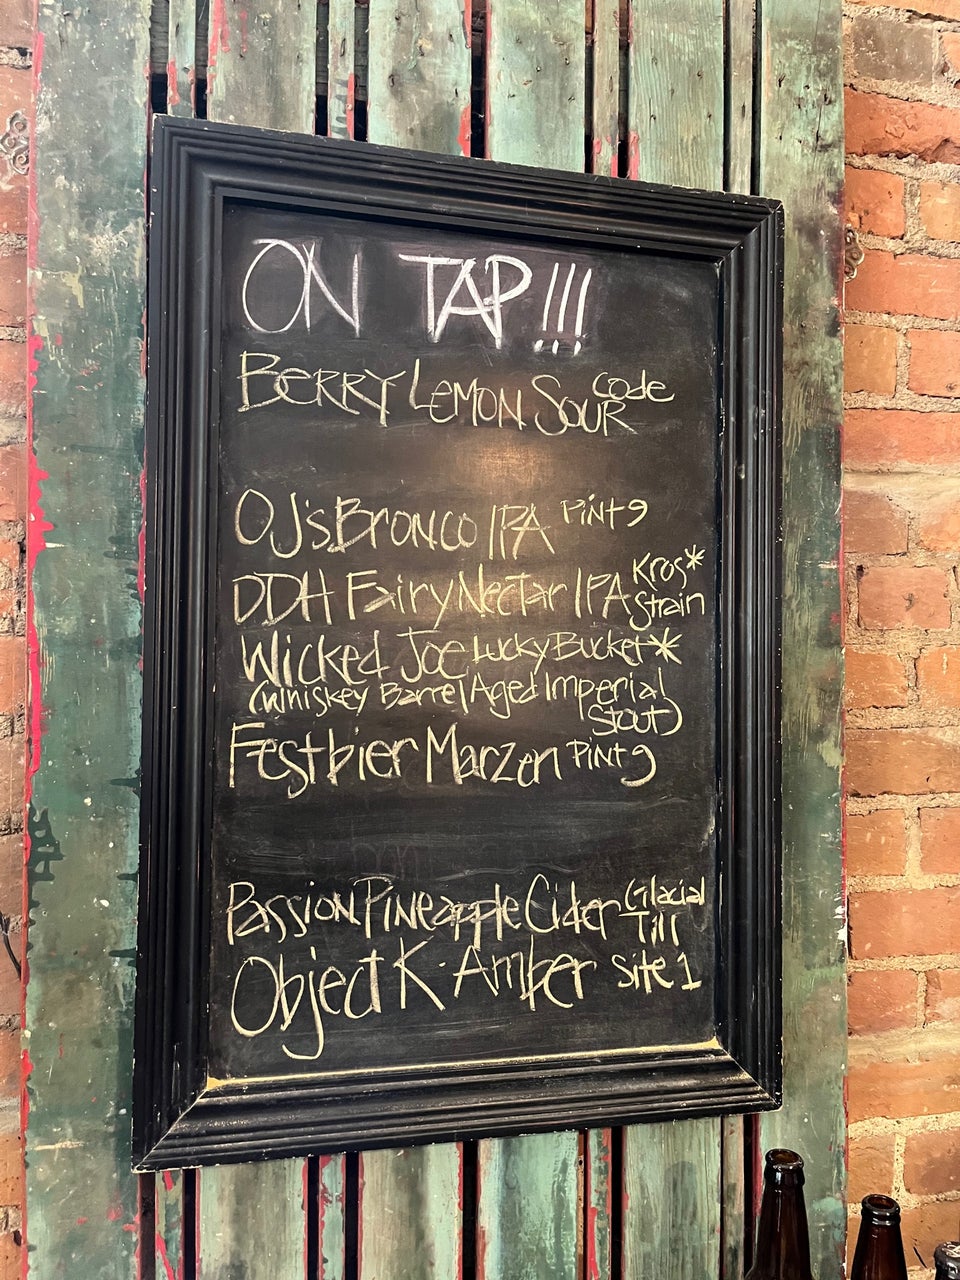 ON TAP!!!
BERRY LEMON SOUR Code
OJ's Bronco IPA Pint 9
DDH Fairy Nectar IPA Kros* Strain
Wicked Joe Lucky Bucket*
(Whiskey Barrel Aged Imperial
Stout)
Festbier Marzen Pint 9
Passion Pineapple Cider Glacial Till
Object K - Amber Site 1